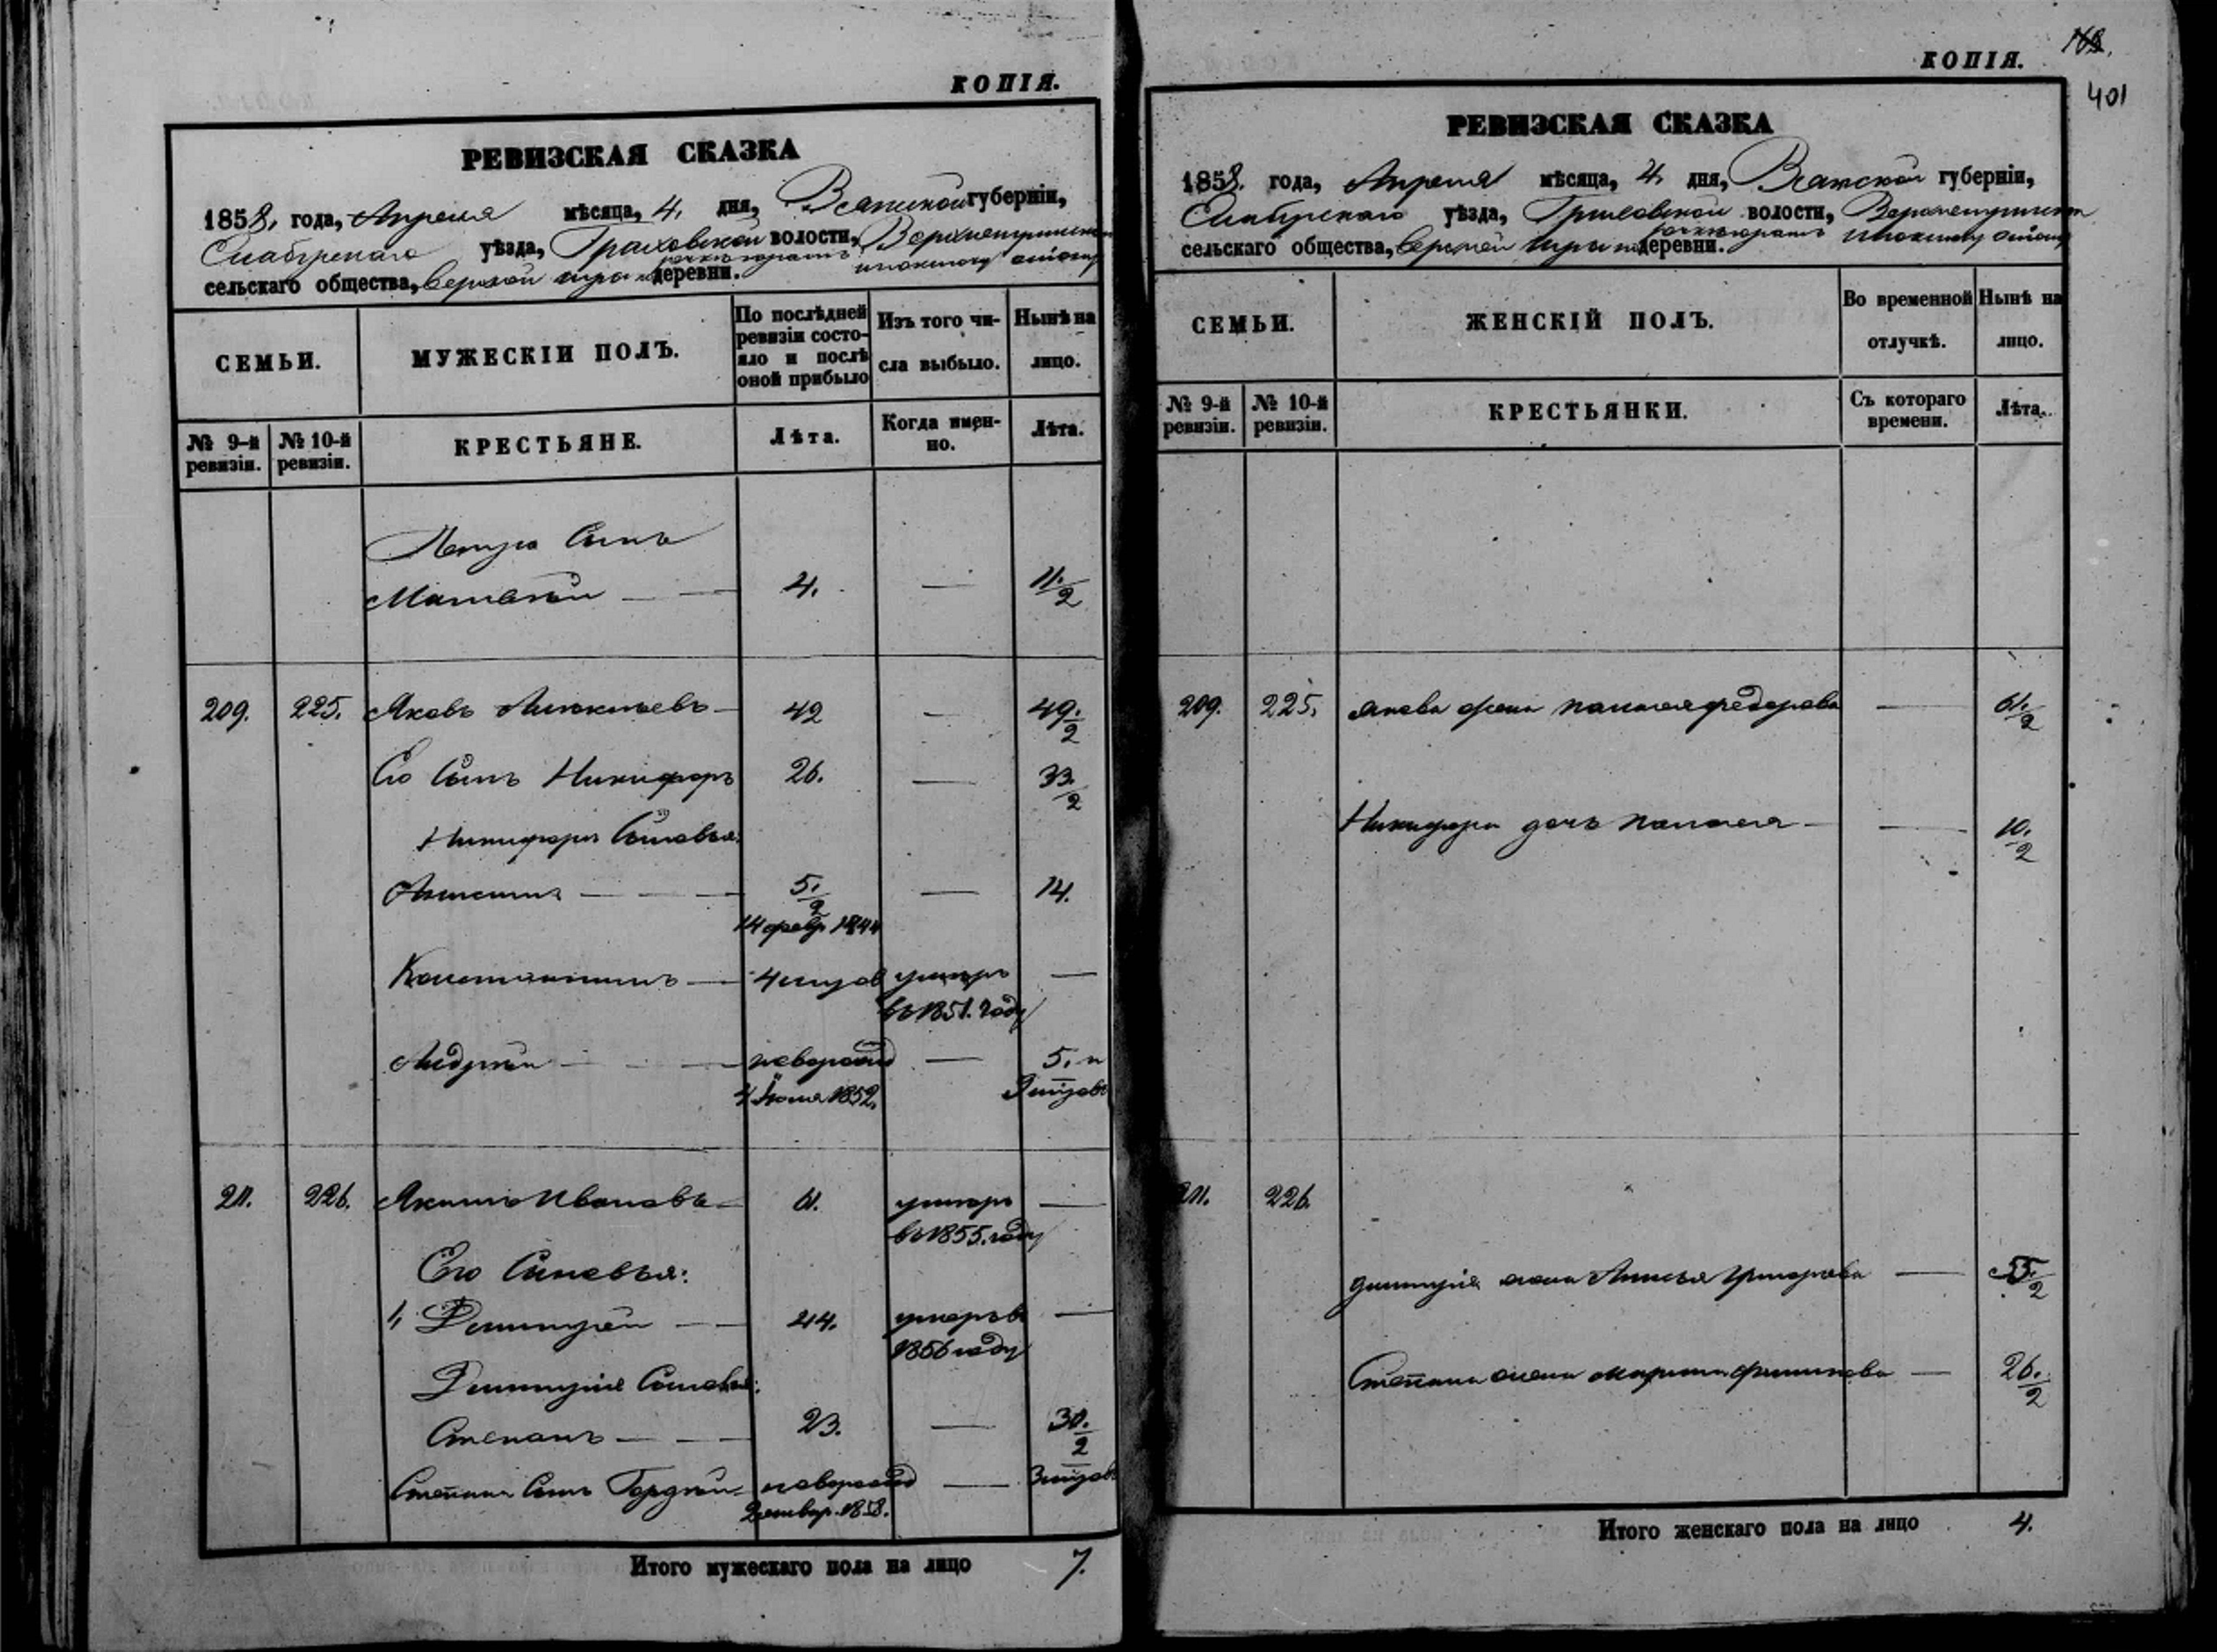 КОПІЯ.
РЕВИЗСКАЯ СКАЗКА
1858, года, Апреля мѣсяца, 4, дня, Вятской губерніи,
Елабугскаго уѣзда, Граховской волости,
сельскаго общества, деревни.
СЕМЬИ.
МУЖЕСКІЙ ПОЛЪ.
По послѣдней ревизіи состояло и послѣ оной прибыло
Изъ того числа выбыло.
Нынѣ на лицо.
№ 9-й ревизіи.
№ 10-й ревизіи.
КРЕСТЬЯНЕ.
Лѣта.
Когда именно.
Лѣта.
Петра Сынъ
Матвѣй 4. — 11 1/2
209. 225. Яковъ 42 — 49 1/2
Его Сынъ Никифоръ 26. — 33 1/2
Никифора Сыновья:
5 1/2 — 14.
14 февр. 1844
Константинъ умеръ —
въ 1851. году
Андрей новорожд — 5. и
1852. 9 мѣсяв
211. 226. Якимъ Ивановъ 61. умеръ —
въ 1855. году
Его Сыновья:
1, Димитрій 44. умеръ въ —
1856 году
Димитрія Сыновья:
Степанъ 23. — 30 1/2
Степана Сынъ Гордѣй новорожд — 3 мѣсяв
1858.
Итого мужескаго пола на лицо 7.
КОПІЯ.
401
РЕВИЗСКАЯ СКАЗКА
1858. года, Апреля мѣсяца, 4, дня, Вятской губерніи,
Елабугскаго уѣзда, Граховской волости,
сельскаго общества, деревни.
СЕМЬИ.
ЖЕНСКІЙ ПОЛЪ.
Во временной отлучкѣ.
Нынѣ на лицо.
№ 9-й ревизіи.
№ 10-й ревизіи.
КРЕСТЬЯНКИ.
Съ котораго времени.
Лѣта.
209. 225. Якова жена Федорова — 61 1/2
Никифора дочь — 10 1/2
211. 226.
Димитрія жена Анисья Григорьева — 55 1/2
Степана жена — 26 1/2
Итого женскаго пола на лицо 4.